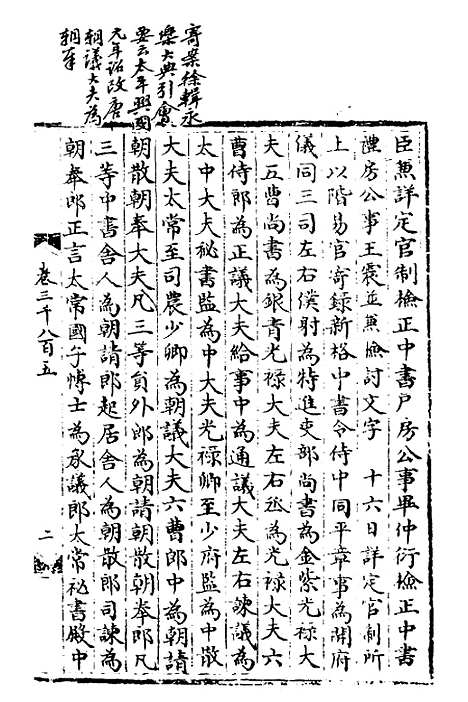 寄案徐輯永
樂大典引會
要云太平興國
元年詔改唐
朝議大夫為
朝奉
臣兼詳定官制檢正中書戶房公事畢仲衍檢正中書
禮房公事王震並兼檢討文字　十六日詳定官制所
上以階易官寄錄新格中書令侍中同平章事為開府
儀同三司左右僕射為特進吏部尚書為金紫光祿大
夫五曹尚書為銀青光祿大夫左右丞為光祿大夫六
曹侍郎為正議大夫給事中為通議大夫左右諫議為
太中大夫秘書監為中大夫光祿卿至少府監為中散
大夫太常至司農少卿為朝議大夫六曹郎中為朝請
朝散朝奉大夫凡三等員外郎為朝請朝散朝奉郎凡
三等中書舍人為朝請郎起居舍人為朝散郎司諫為
朝奉郎正言太常國子博士為承議郎太常祕書殿中
卷三千八百五
二